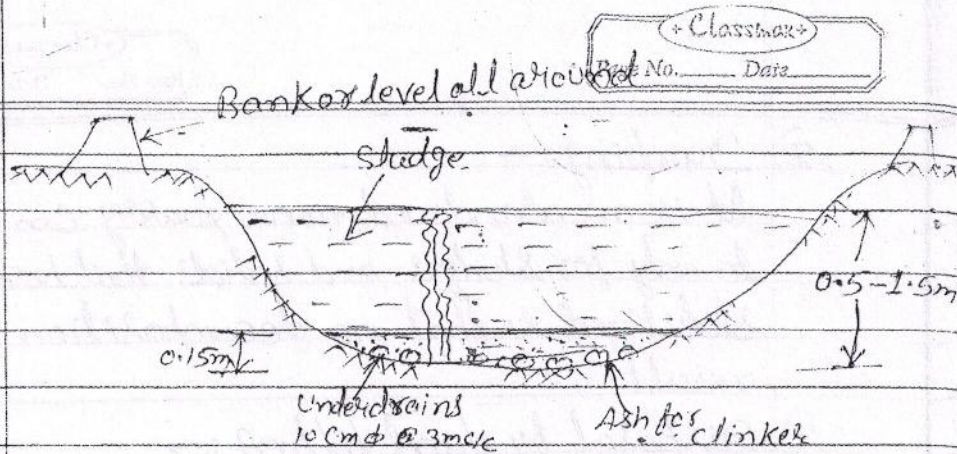 Classmax
Page No. Date
Bank or level all around
Sludge
0.5-1.5m
0.15m
Underdrains
10 cm ϕ @ 3m c/c
Ash for
clinker